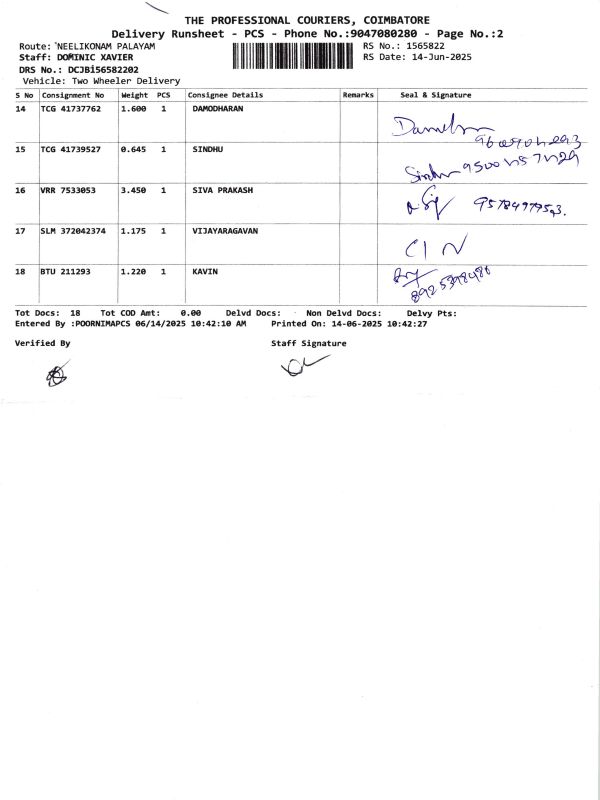 THE PROFESSIONAL COURIERS, COIMBATORE
Delivery Runsheet - PCS - Phone No.:9047080280 - Page No.:2
Route: NEELIKONAM PALAYAM RS No.: 1565822
Staff: DOMINIC XAVIER RS Date: 14-Jun-2025
DRS No.: DCJBI56582202
Vehicle: Two Wheeler Delivery
S No Consignment No Weight PCS Consignee Details Remarks Seal & Signature
14 TCG 41737762 1.600 1 DAMODHARAN
15 TCG 41739527 0.645 1 SINDHU
Sindhu
16 VRR 7533053 3.450 1 SIVA PRAKASH
17 SLM 372042374 1.175 1 VIJAYARAGAVAN
18 BTU 211293 1.220 1 KAVIN
Tot Docs: 18 Tot COD Amt: 0.00 Delvd Docs: Non Delvd Docs: Delvy Pts:
Entered By :POORNIMAPCS 06/14/2025 10:42:10 AM Printed On: 14-06-2025 10:42:27
Verified By Staff Signature